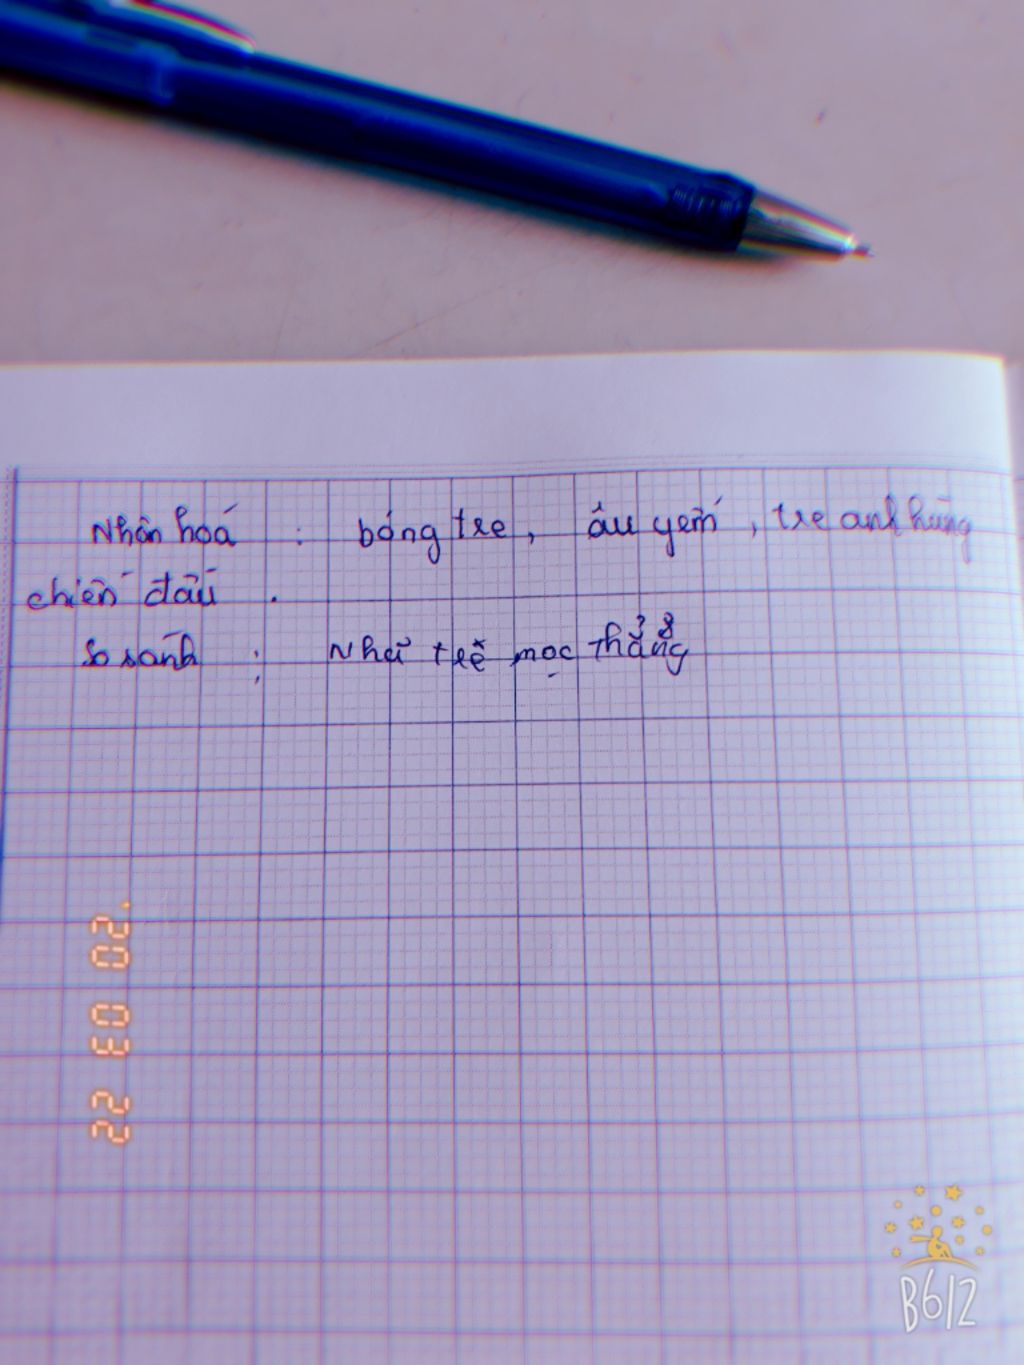 Nhân hoá : bóng tre, âu yếm, tre anh hùng
chiến đấu .
So sánh : Như tre mọc thẳng
22 03 02.
B612